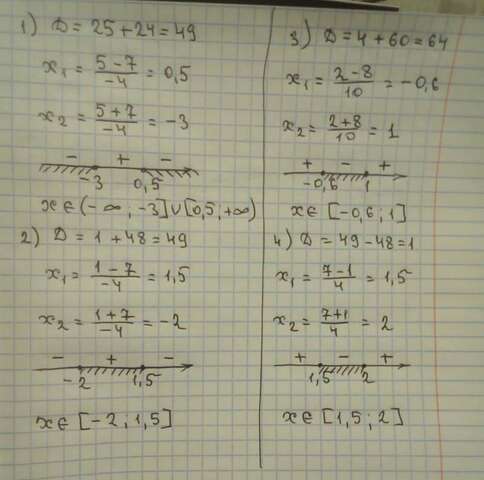 1) D = 25 + 24 = 49
x₁ = (5 - 7)/(-4) = 0,5
x₂ = (5 + 7)/(-4) = -3
- + -
-3 0,5
x ∈ (-∞; -3] ∪ [0,5; +∞)
2) D = 1 + 48 = 49
x₁ = (1 - 7)/(-4) = 1,5
x₂ = (1 + 7)/(-4) = -2
- + -
-2 1,5
x ∈ [-2; 1,5]
3) D = 4 + 60 = 64
x₁ = (2 - 8)/10 = -0,6
x₂ = (2 + 8)/10 = 1
+ - +
-0,6 1
x ∈ [-0,6; 1]
4) D = 49 - 48 = 1
x₁ = (7 - 1)/4 = 1,5
x₂ = (7 + 1)/4 = 2
+ - +
1,5 2
x ∈ [1,5; 2]